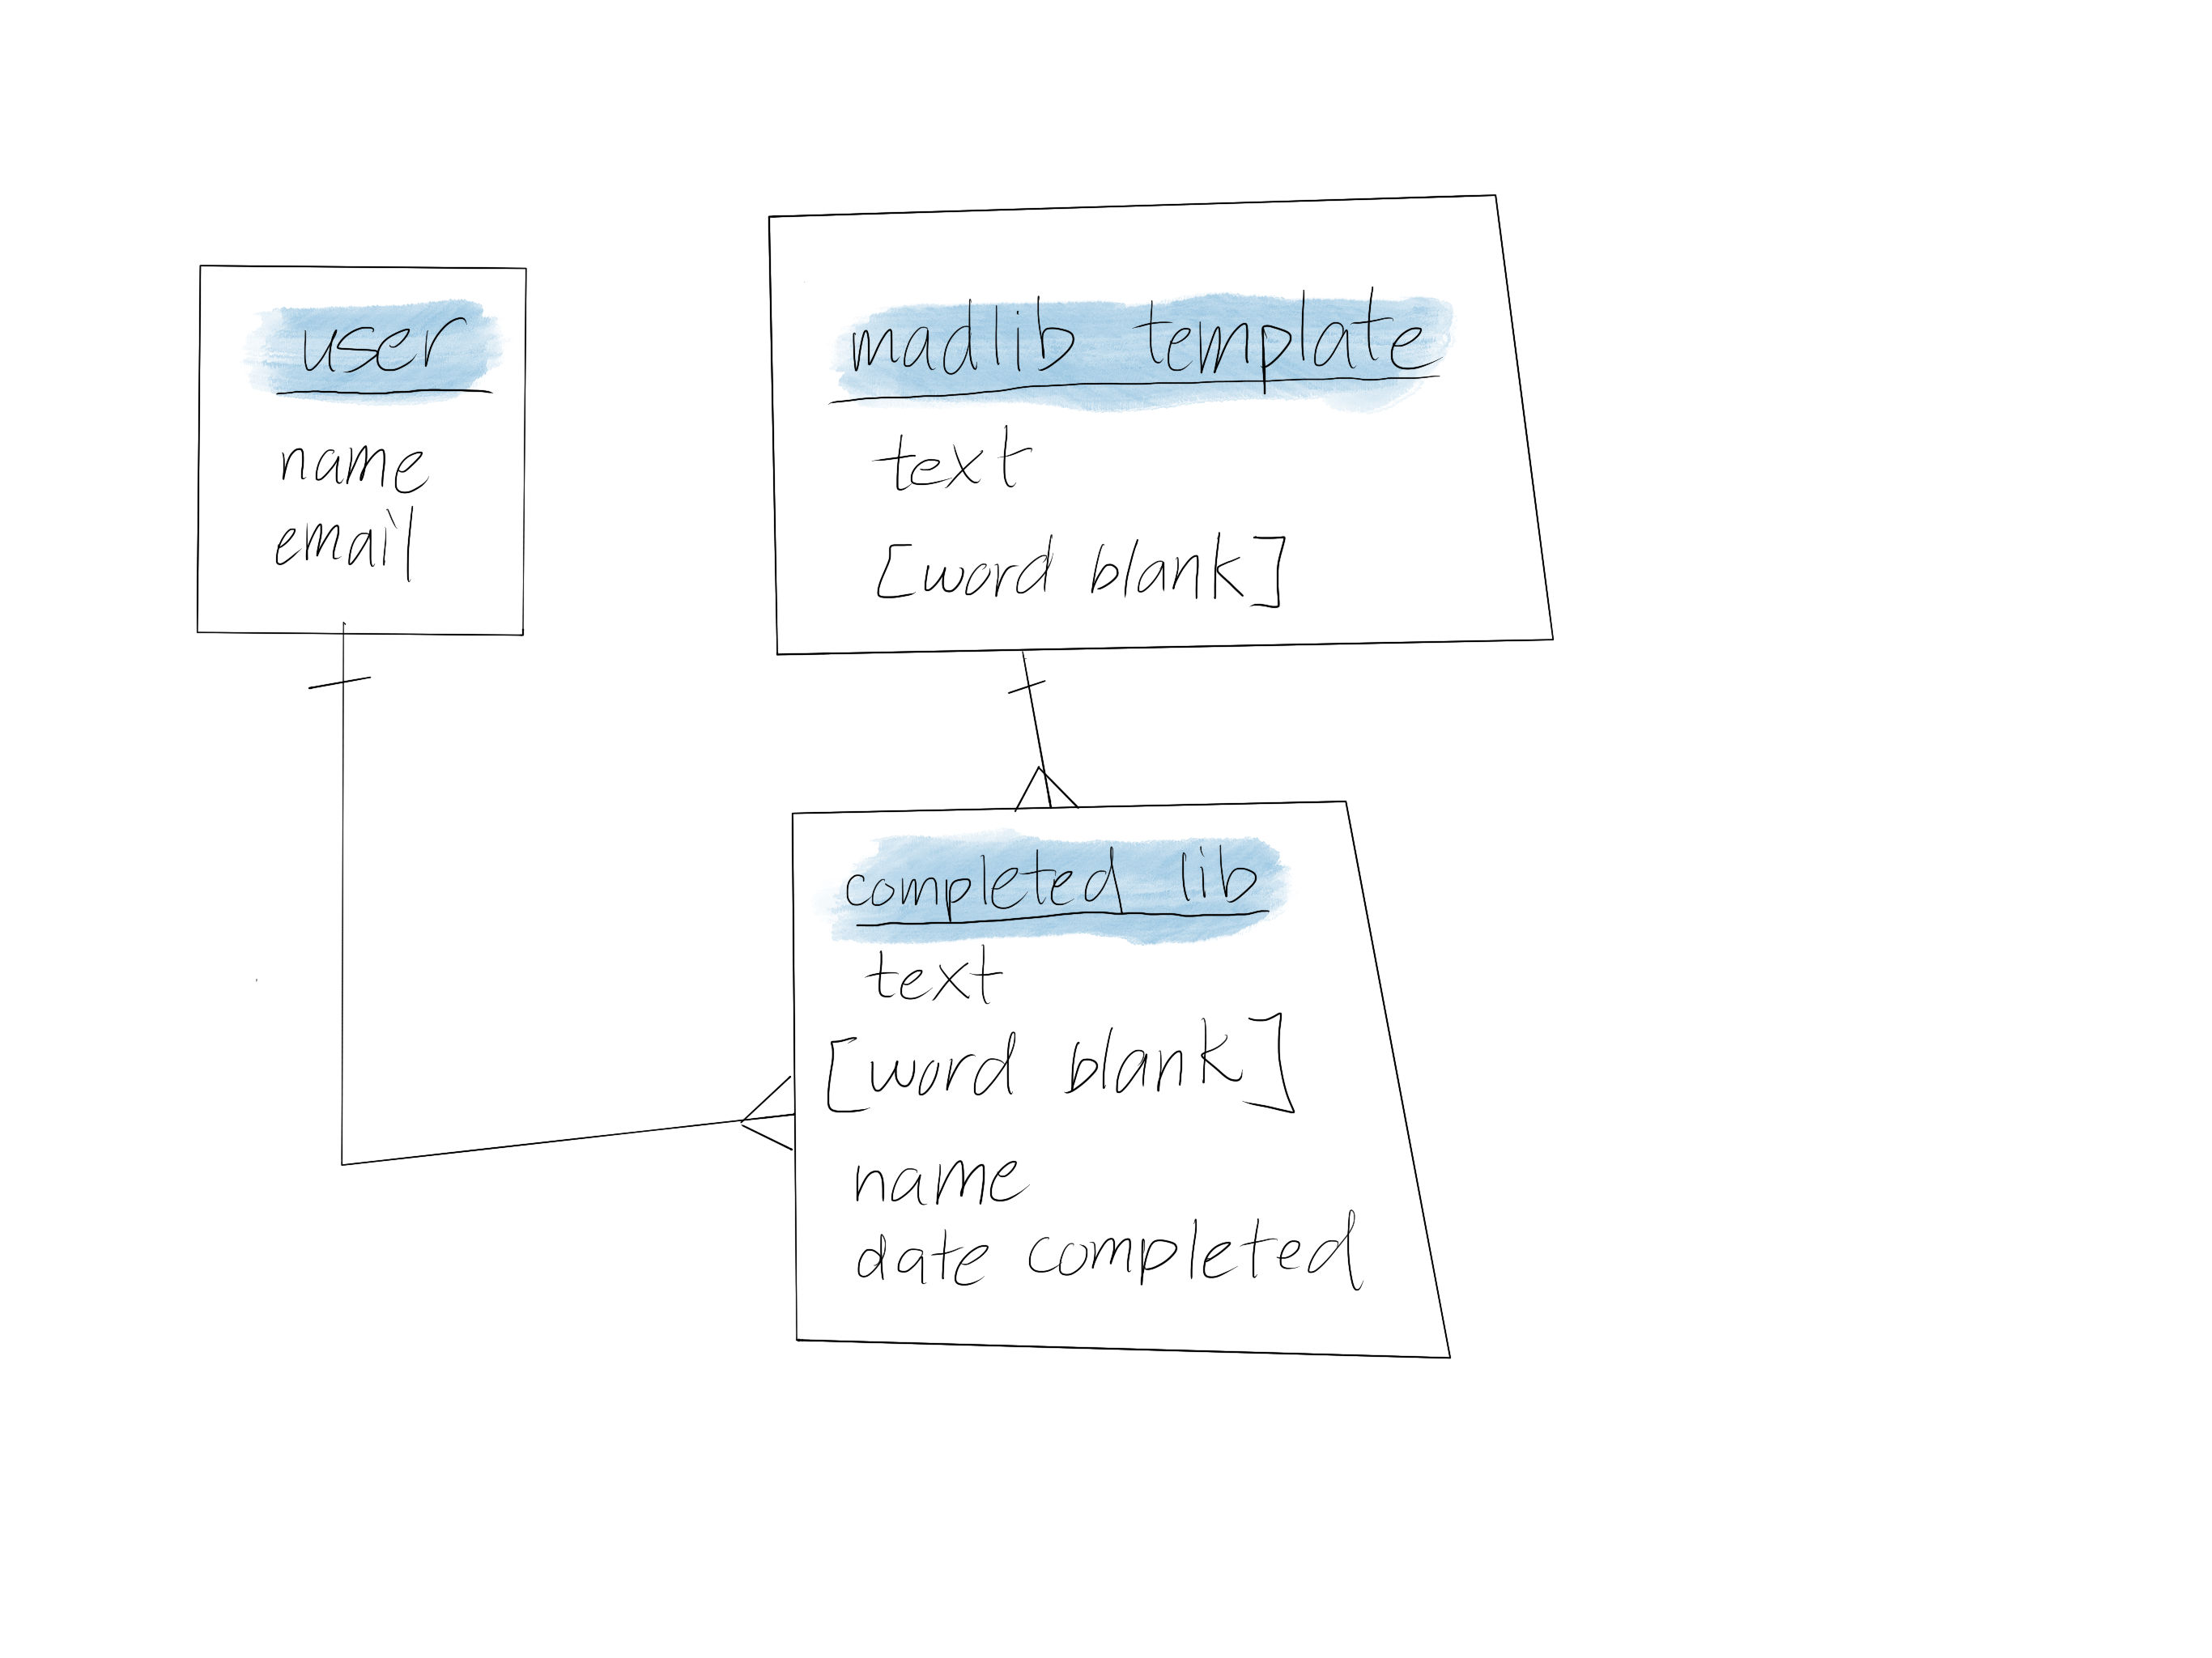 user
name
email
madlib template
text
[word blank]
completed lib
text
[word blank]
name
date completed